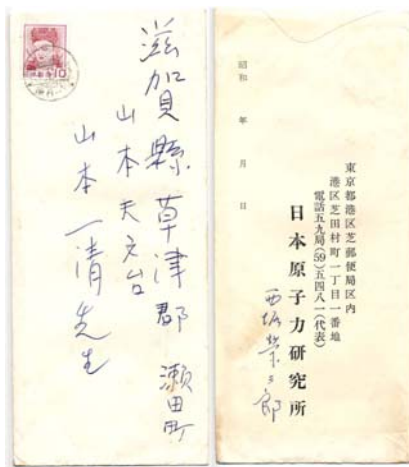 10
滋賀縣草津郡 瀬田町
山本天文台
山本一清先生
昭和 年 月 日
東京都港区芝郵便局区内
港区芝田村町一丁目一番地
電話五九局(59)五四八一(代表)
日本原子力研究所
西堀栄三郎